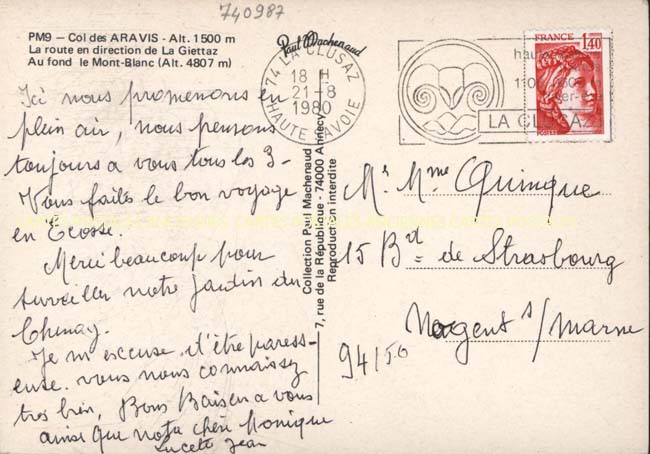 740987
PM9 - Col des ARAVIS - Alt. 1500 m
La route en direction de La Giettaz
Au fond le Mont-Blanc (Alt. 4807 m)
Ici nous promenons en
plein air, nous pensons
toujours a vous tous les 3-
Vous faites le bon voyage
en Ecosse.
Merci beaucoup pour
surveiller notre jardin du
Chenay.
Je m'escuse d'être paress-
euse. vous nous connaissez
tres bien, Bons Baisers a vous
ainsi que notre chère Monique
Lucette Jean
Paul Machenaud
Collection Paul Machenaud
7, rue de la République - 74000 Annecy
Reproduction interdite
74 LA CLUSAZ
18 H
21-8
1980
HAUTE SAVOIE
LA CLUSAZ
FRANCE
1,40
Mr Mme Quinque
15 Bd de Strasbourg
Nogent s/ Marne
94150